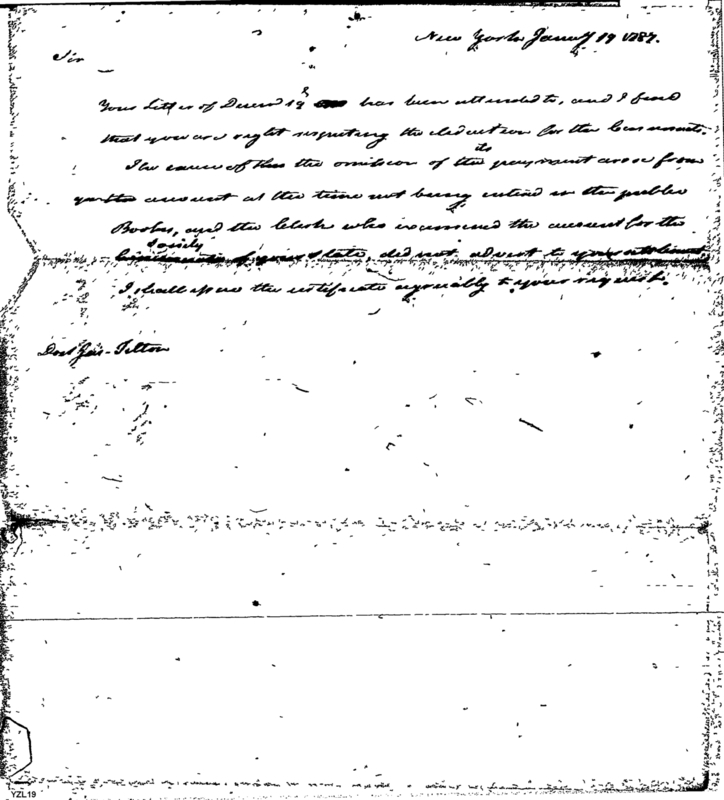 New York Janu'y 19 1787.
Sir
Your Letter of Decem'r 19 has been attended to, and I find
that you are right respecting the deduction for the
The cause of the omission of the payment arose from
its
account at the time not being entered in the public
Books, and the Clerk who examined the account for the
State, did not advert to
I shall issue the certificate agreeably to your request.
Doct Jas. Tilton
YZL19